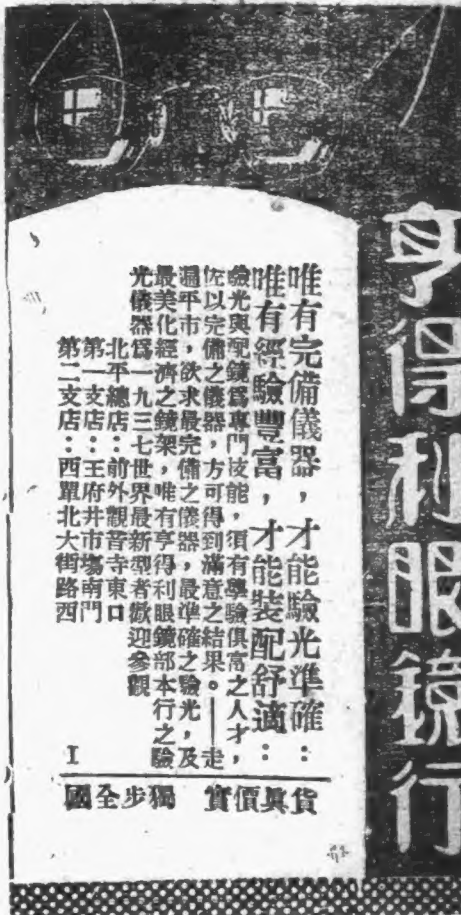 亨得利眼鏡行
唯有完備儀器，才能驗光準確：
唯有經驗豐富，才能裝配舒適：
驗光與配鏡爲專門技能，須有學驗俱富之人才，
佐以完備之儀器，方可得到滿意之結果。——走
遍平市，欲求最完備之儀器，最準確之驗光，及
最美化經濟之鏡架，唯有亨得利眼鏡部本行之驗
光儀器爲一九三七世界最新型者歡迎參觀
北平總店：前外觀音寺東口
第一支店：王府井市場南門
第二支店：西單北大街路西
I
貨眞價實　獨步全國